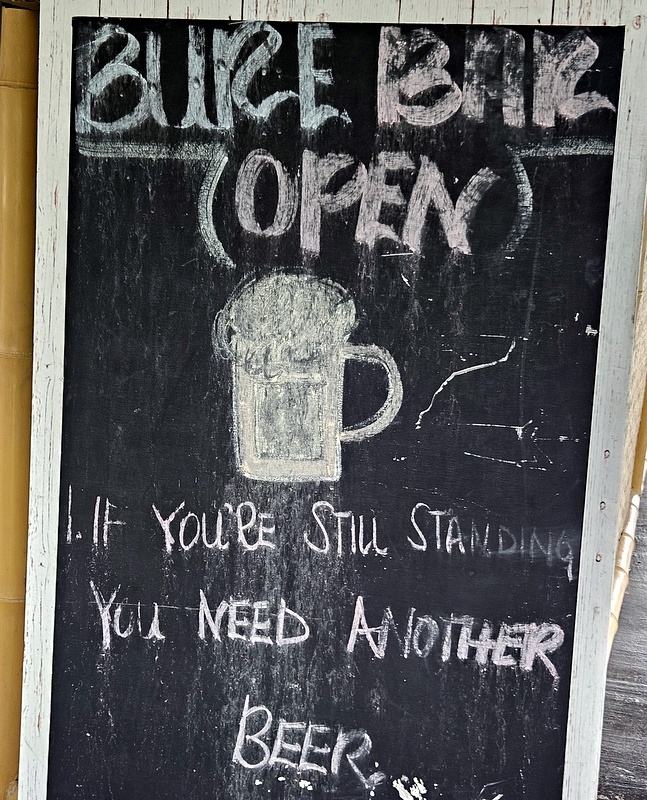 BURE BAR
(OPEN)
1. IF YOU'RE STILL STANDING
YOU NEED ANOTHER
BEER.